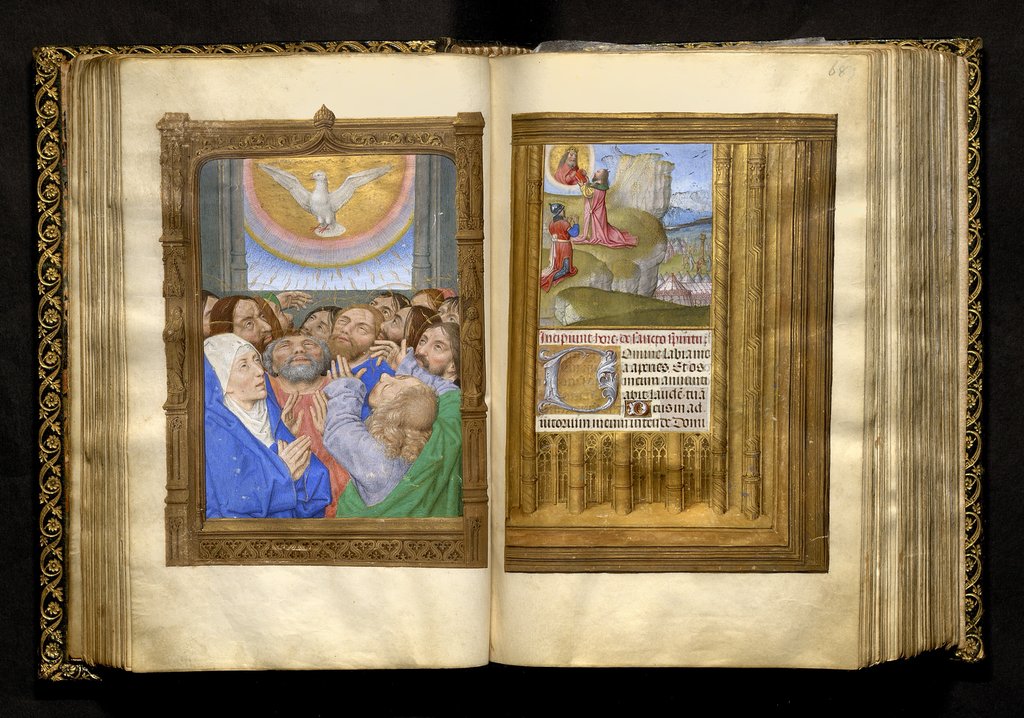 68
Incipiunt hore de sancto spiritu
Domine labia mea
aperies Et os
meum annunti
abit laudē tuā
Deus in ad
iutorium meum intende Domi